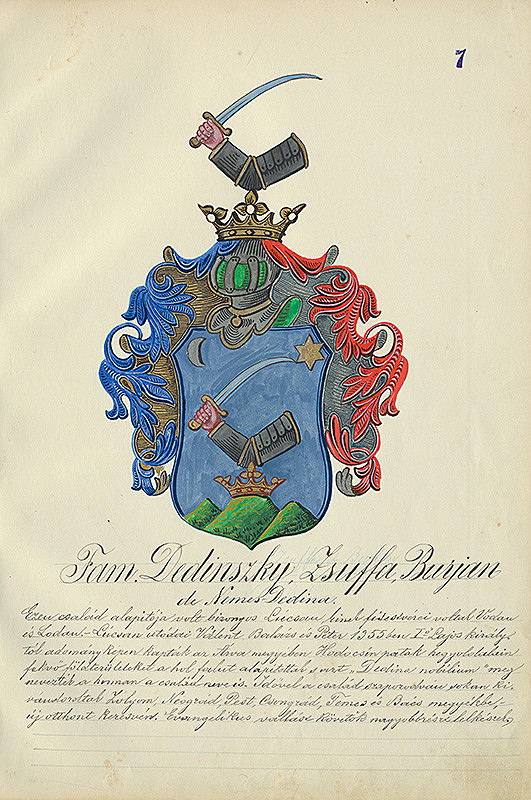 7
Fam. Dedinszky, Zsuffa, Burjan
de Nemes-Dedina.
Ezen család alapitója volt bizonyos Lucsan kinek fisessórei voltak Vodan
és Zodan. - Lucsan utódai Valent Balázs és Péter 1355 ben I ső Lajos király
tól adományképen kapták az Árva megyében Hrdocsin patak hegyoldalain
fekvő földterületeket a hol falut alapitottak s azt „Dedina nobilium" meg
nevezték a honnan a család neve is. Idővel a család szaporodván sokan ki
vándoroltak Zolyom, Neograd, Pest, Csongrad, Temes és Bács megyékbe,
új otthont keresvén. Evangelikus vallást követők nagyobbrészt lelkészek,